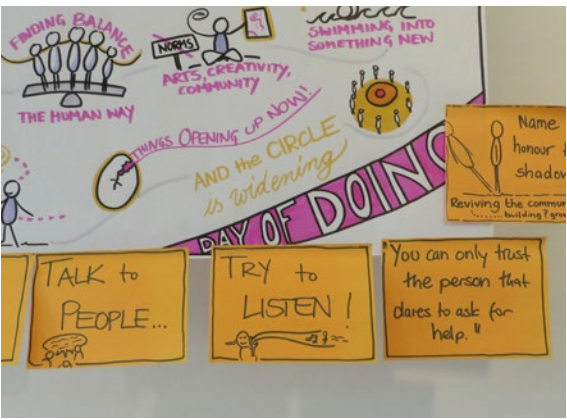 FINDING BALANCE
THE HUMAN WAY
NORMS
ARTS, CREATIVITY,
COMMUNITY
SWIMMING INTO
SOMETHING NEW
THINGS OPENING UP NOW!!
AND the CIRCLE
is widening
DAY OF DOING
Name
honour
shadow
Reviving the commun
building?
TALK to
PEOPLE...
TRY to
LISTEN!
You can only trust
the person that
dares to ask for
help."